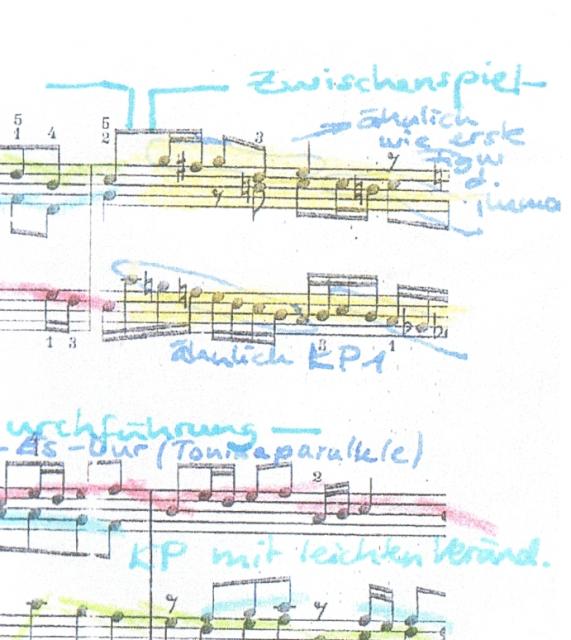 Zwischenspiel
ähnlich
wie erste
Figur
d.
Thema
5
1 4
5
2
3
1 3
3 1
ähnlich KP1
urchführung
-Es-Dur (Tonikaparallele)
2
KP mit leichten Veränd.